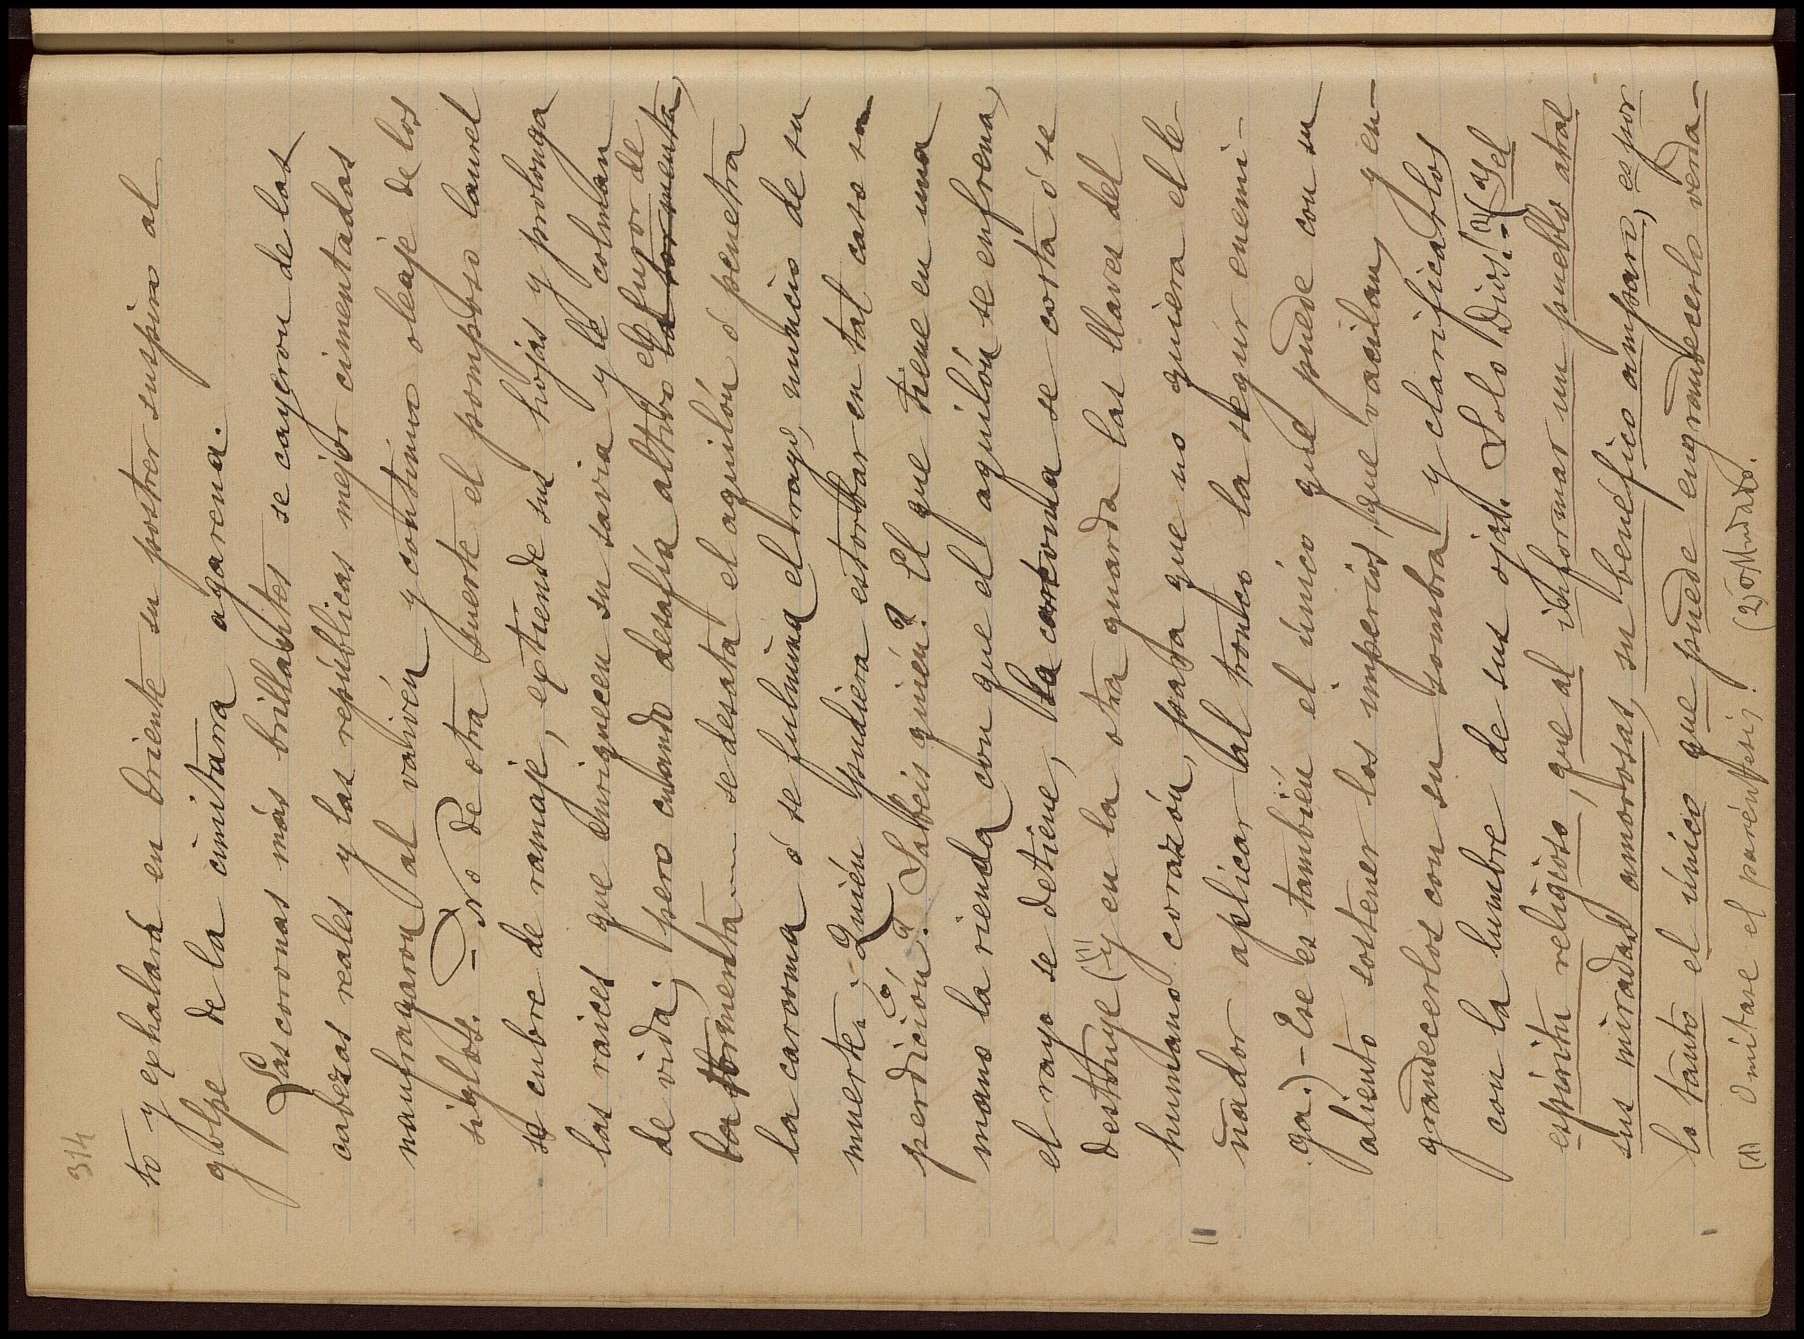 314
to y exhalará en Oriente su postrer suspiro al
golpe de la cimitarra agarena.
Las coronas más brillantes se cayeron de las
cabezas reales y las repúblicas mejor cimentadas
naufragaron al vaivén y contínuo oleaje de los
siglos. - No de otra suerte el pomposo laurel
se cubre de ramaje, extiende sus hojas y prolonga
las raices que enriquecen su savia y le colman
de vida; pero cuando desafía altivo el furor de la tormenta,
la tormenta se desata el aquilón ó penetra
la carcoma ó se fulmina el rayo, nuncio de su
muerte. ¿Quién pudiera estorbar en tal caso su
perdición? ¿Sabéis quién? El que tiene en una
mano la rienda con que el aquilón se enfrena,
el rayo se detiene, la carcoma se corta ó se
destruye (1) (y en la otra guarda las llaves del
humano corazón, para que no quiera el le-
ñador aplicar al tronco la segur enemi-
ga.) - Ese es también el único que puede con su
aliento sostener los imperios que vacilan, y en-
grandecerlos con su sombra y clarificarlos
con la lumbre de sus ojos. Solo Dios! (2) (Y el
espíritu religioso, que al informar un pueblo atrae
sus miradas amorosas, su benéfico amparo, es por
lo tanto el único que puede engrandecerlo verda-
(1) Omitase el paréntesis. (2) Olvidado.